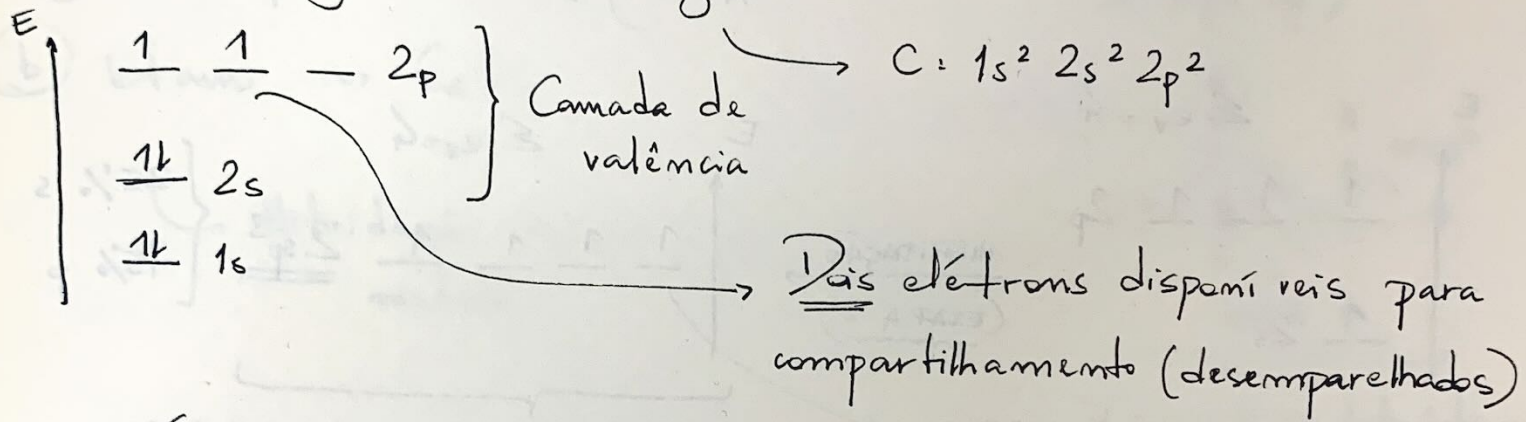 E
1 1 — 2p
C: 1s² 2s² 2p²
Camada de
valência
1L 2s
1L 1s
Dois elétrons disponíveis para
compartilhamento (desemparelhados)